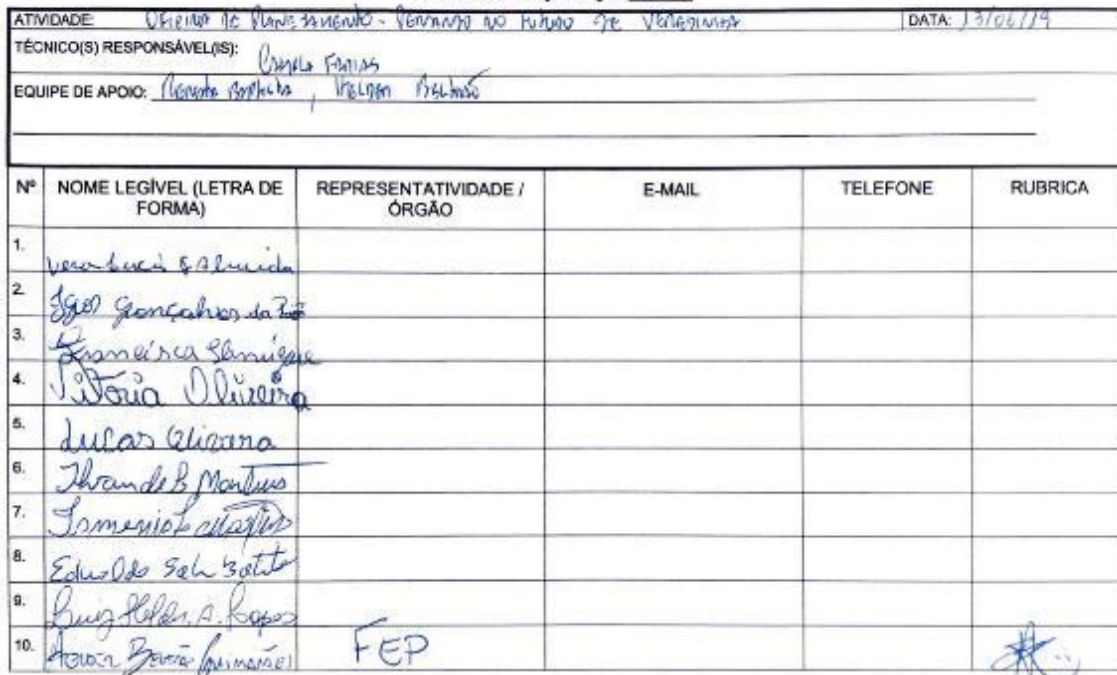 ATIVIDADE: OFICINA DE PLANEJAMENTO - PENSANDO NO FUTURO DE VEREDINHA DATA: 13/06/19
TÉCNICO(S) RESPONSÁVEL(IS): CAMILA FARIAS
EQUIPE DE APOIO: Renata
Nº NOME LEGÍVEL (LETRA DE FORMA) REPRESENTATIVIDADE / ÓRGÃO E-MAIL TELEFONE RUBRICA
1. Vera Lucia Almeida
2. Igor Gonçalves da
3. Francisca Henrique
4. Vitória Oliveira
5. Lucas Oliveira
6. Martins
7.
8. Eduardo
9. Luiz A. Lopes
10. Guimarães FEP